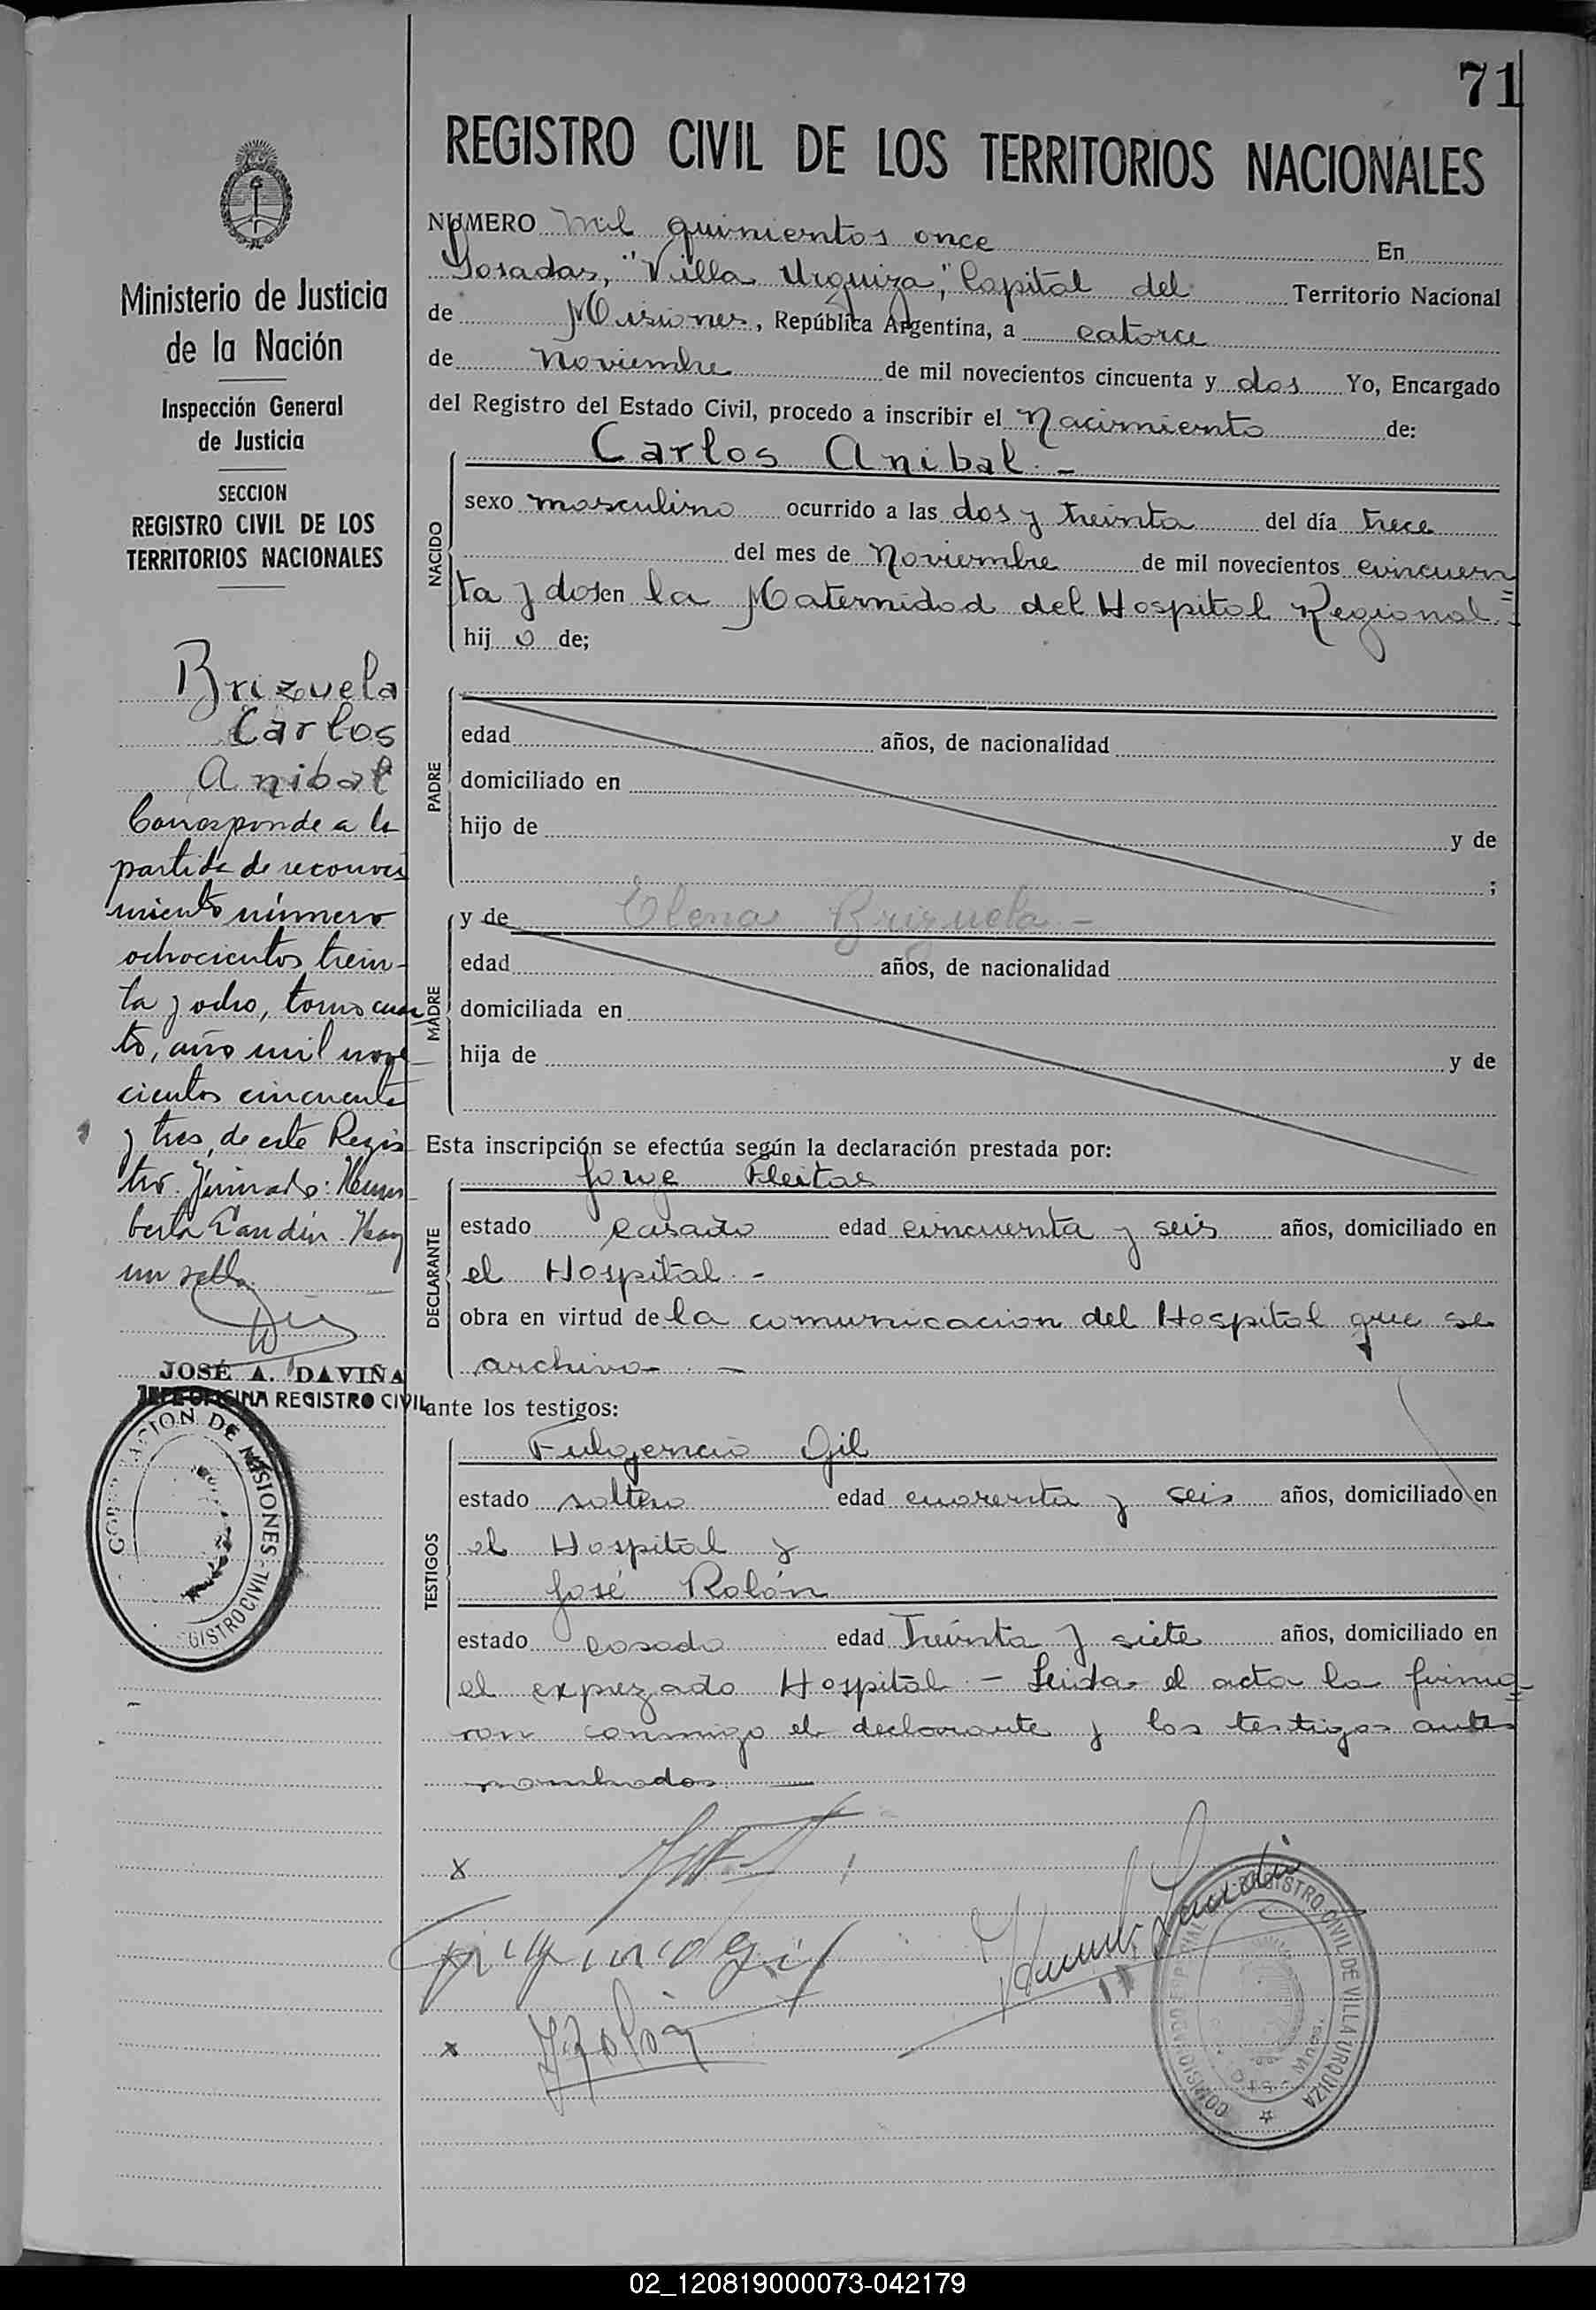 71
REGISTRO CIVIL DE LOS TERRITORIOS NACIONALES
Ministerio de Justicia
de la Nación
Inspección General
de Justicia
SECCION
REGISTRO CIVIL DE LOS
TERRITORIOS NACIONALES
Brizuela
Carlos
Anibal
Corresponde a la
partida de reconoci
miento número
ochocientos trein-
ta y ocho, tomo cuar
to, año mil nove
cientos cincuenta
y tres, de este Regis
tro. Firmado: Hum
berto Landin. Hay
un sello.
JOSÉ A. DAVIÑA
JEFE OFICINA REGISTRO CIVIL
GOBERNACION DE MISIONES - REGISTRO CIVIL
NUMERO mil quinientos once En
Posadas, "Villa Urquiza", Capital del Territorio Nacional
de Misiones, República Argentina, a catorce
de Noviembre de mil novecientos cincuenta y dos Yo, Encargado
del Registro del Estado Civil, procedo a inscribir el Nacimiento de:
NACIDO
Carlos Anibal. -
sexo masculino ocurrido a las dos y treinta del día trece
del mes de Noviembre de mil novecientos cincuen
ta y dos en la Maternidad del Hospital Regional. -
hij o de;
PADRE
edad años, de nacionalidad
domiciliado en
hijo de y de
;
MADRE
y de Elena Brizuela -
edad años, de nacionalidad
domiciliada en
hija de y de
Esta inscripción se efectúa según la declaración prestada por:
DECLARANTE
Jorge Fleitas
estado casado edad cincuenta y seis años, domiciliado en
el Hospital. -
obra en virtud de la comunicacion del Hospital que se
archiva - -
ante los testigos:
TESTIGOS
Fulgencio Gil
estado soltero edad cuarenta y seis años, domiciliado en
el Hospital y
José Rolón
estado casado edad Treinta y siete años, domiciliado en
el exprezado Hospital. - Leida el acta la firma
ron conmigo el declarante y los testigos antes
nombrados
x
x
REGISTRO CIVIL DE VILLA URQUIZA
02_120819000073-042179